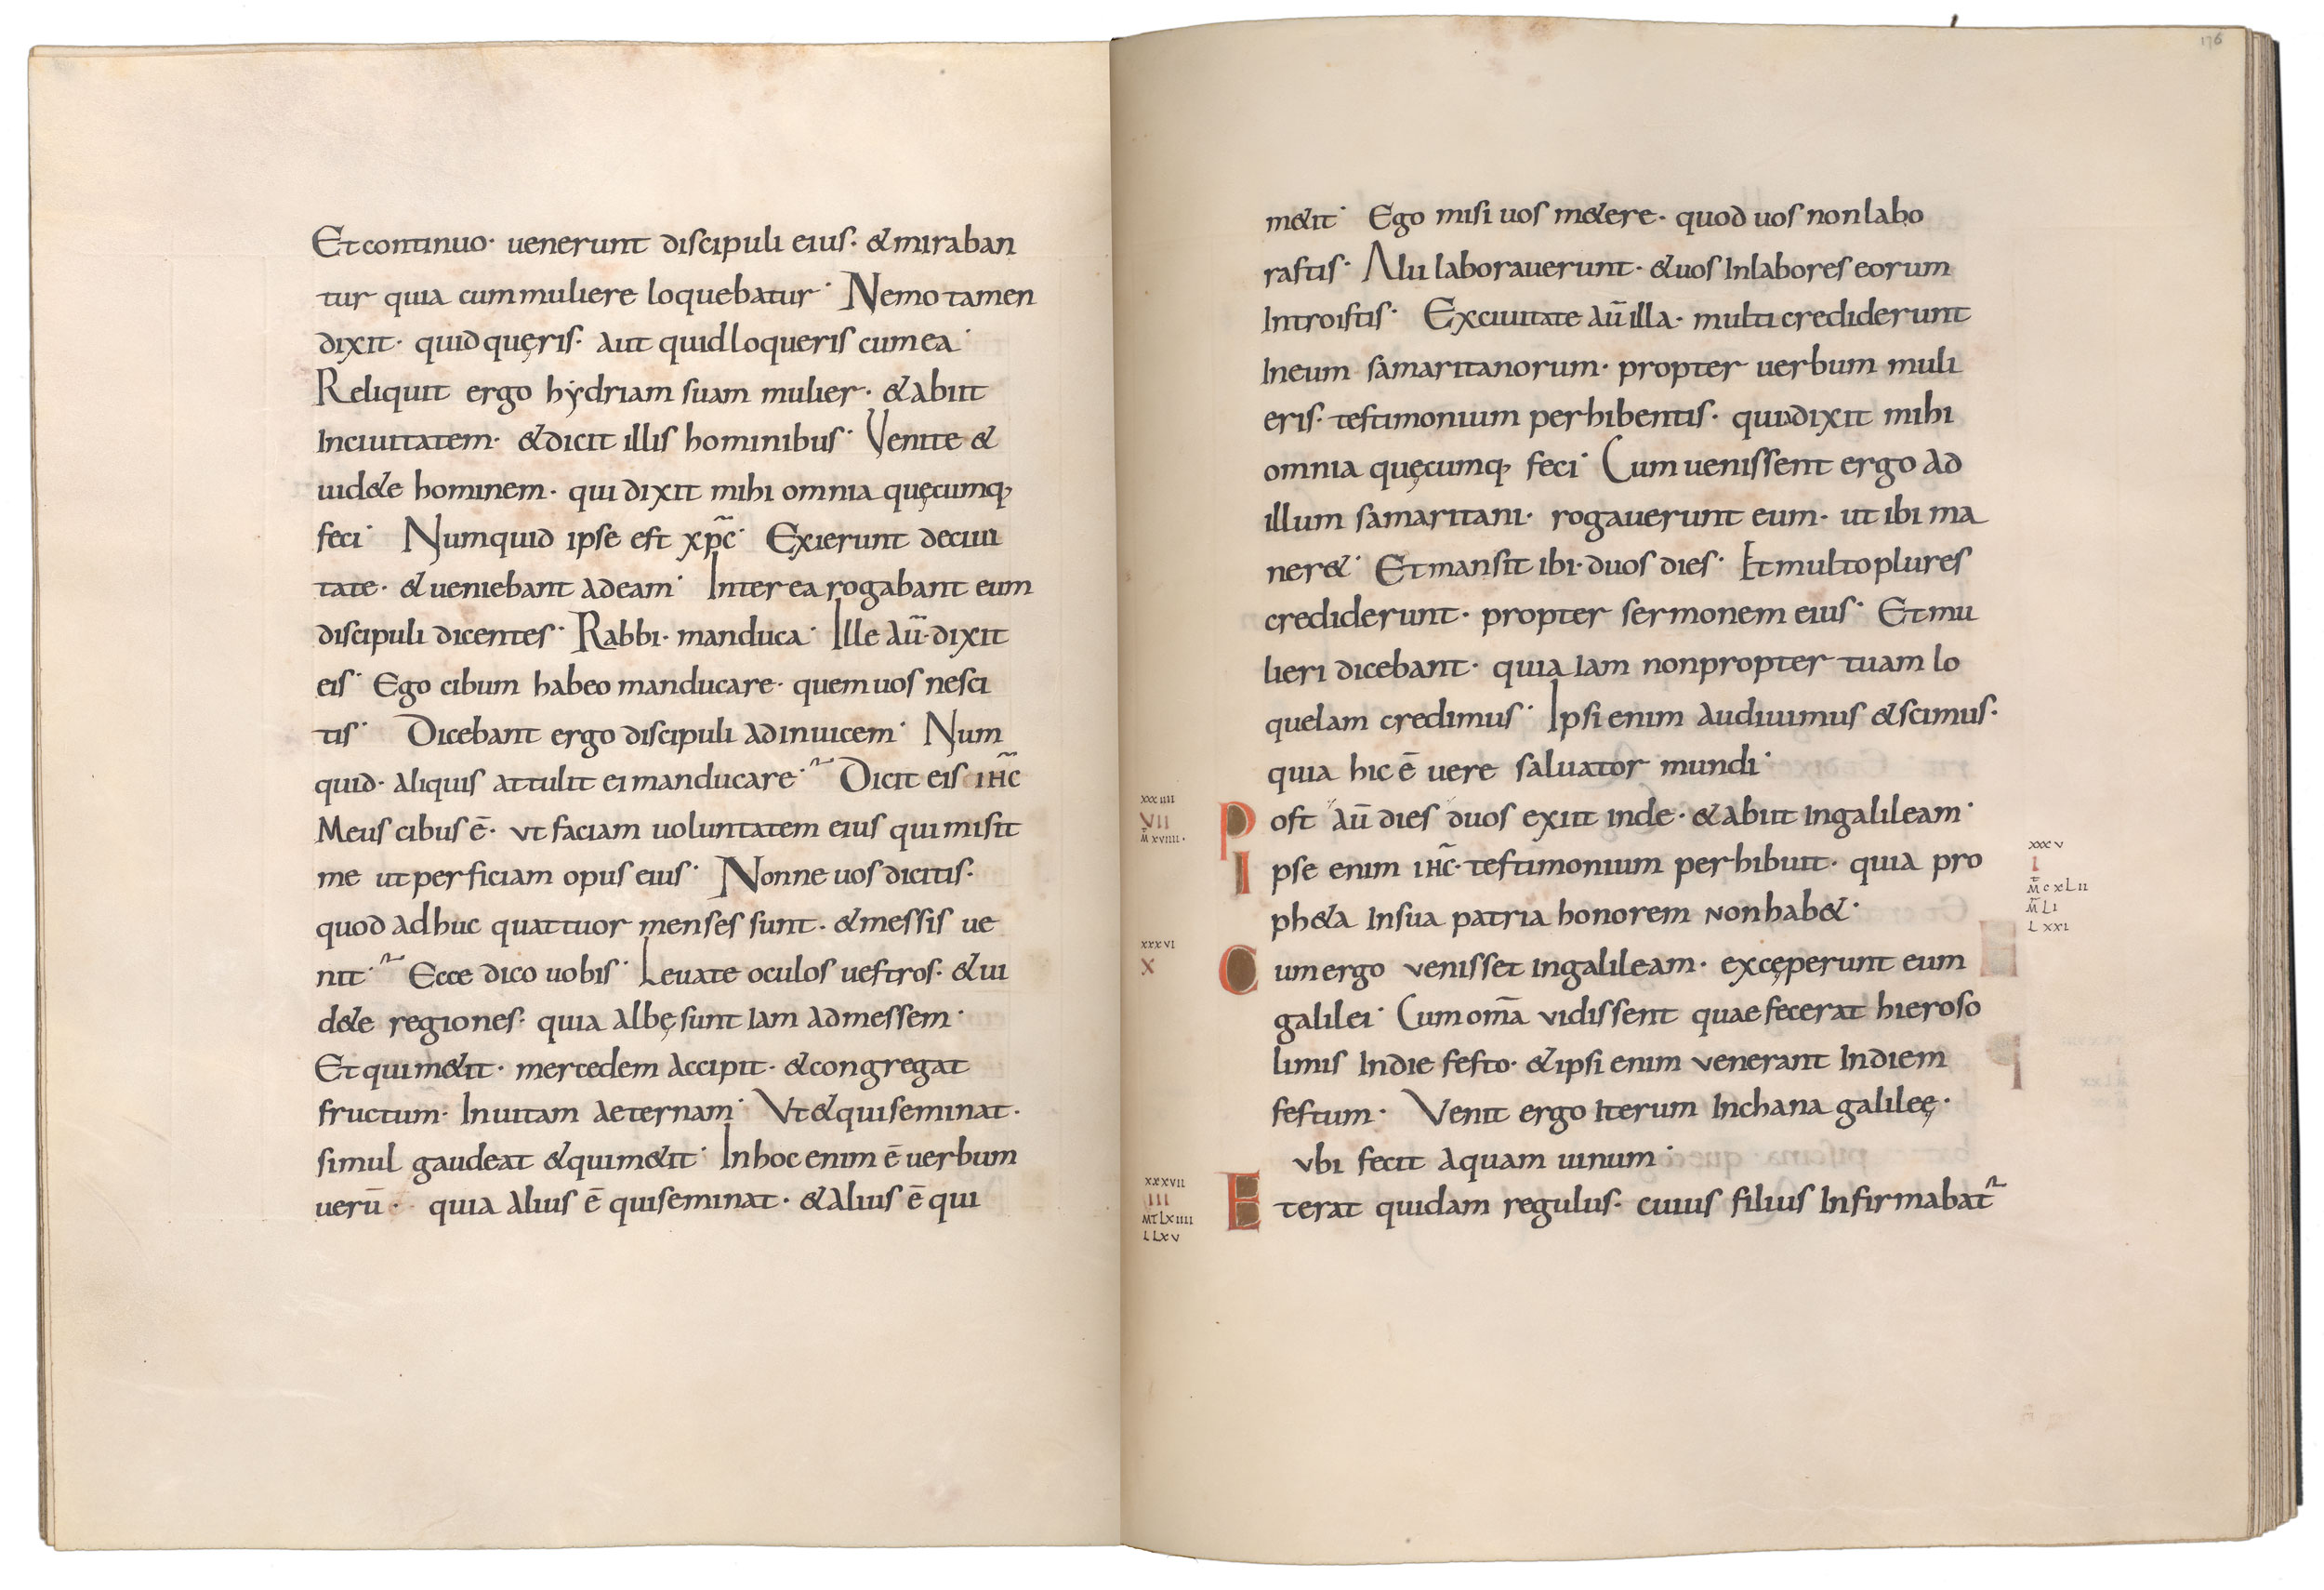 Et continuo· uenerunt discipuli eius· & miraban
tur quia cum muliere loquebatur· Nemo tamen
dixit· quid quęris· aut quid loqueris cum ea·
Reliquit ergo hẏdriam suam mulier· & abiit
In ciuitatem· & dicit illis hominibus· Venite &
uid&e hominem· qui dixit mihi omnia quęcumq;
feci· Numquid ipse est xp̃c· Exierunt de ciui
tate· & ueniebant ad eam· Interea rogabant eum
discipuli dicentes· Rabbi· manduca· Ille aū· dixit
eis· Ego cibum habeo manducare· quem uos nesci
tis· Dicebant ergo discipuli ad inuicem· Num
quid· aliquis attulit ei manducare· Dicit eis ihc̃
Meus cibus ē· ut faciam uoluntatem eius qui misit
me ut perficiam opus eius· Nonne uos dicitis·
quod adhuc quattuor menses sunt· & messis ue
nit· Ecce dico uobis· Leuate oculos uestros· & ui
d&e regiones· quia albę sunt iam ad messem·
Et qui m&it· mercedem accipit· & congregat
fructum· In uitam aeternam· Vt & qui seminat·
simul gaudeat & qui m&it· In hoc enim ē uerbum
uerū· quia alius ē qui seminat· & alius ē qui
176
m&it· Ego misi uos m&ere· quod uos non labo
rastis· Alii laborauerunt· & uos In labores eorum
Introistis· Ex ciuitate aū illa· multi crediderunt
In eum samaritanorum· propter uerbum muli
eris· testimonium perhibentis· quia dixit mihi
omnia quęcumq; feci· Cum uenissent ergo ad
illum samaritani· rogauerunt eum· ut ibi ma
ner&· Et mansit ibi· duos dies· Et multo plures
crediderunt· propter sermonem eius· Et mu
lieri dicebant· quia iam non propter tuam lo
quelam credimus· Ipsi enim audiuimus & scimus·
quia hic ē uere saluator mundi·
xxxiiii
VII
M̄ xviiii·
Post aū dies duos exiit inde· & abiit In galileam·
Ipse enim ihc̃· testimonium perhibuit· quia pro
ph&a In sua patria honorem non hab&·
xxxv
I
M̄ cxLii
M̄ Li
L xxi
xxxvi
X
Cum ergo venisset in galileam· excęperunt eum
galilei· Cum om̄a vidissent quae fecerat hieroso
limis In die festo· & ipsi enim venerant In diem
festum· Venit ergo iterum In chana galileę·
vbi fecit aquam uinum·
xxxvii
III
MT Lxiiii
L Lxv
Et erat quidam regulus· cuius filius Infirmabat~